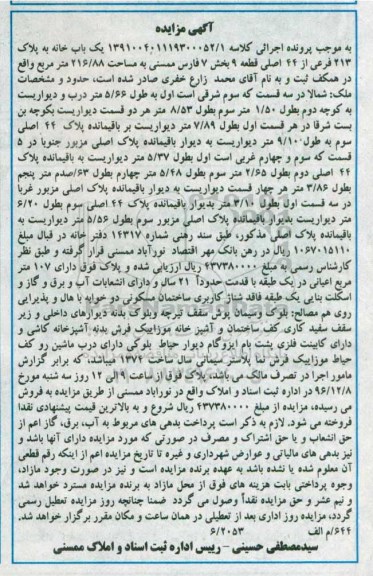 آگهی مزایده
به موجب پرونده اجرائی کلاسه ۱۳۹۱۰۰۴۰۱۱۱۹۳۰۰۰۵۲/۱ یک باب خانه به پلاک
۲۱۳ فرعی از ۴۴ اصلی قطعه ۹ بخش ۷ فارس ممسنی به مساحت ۲۱۶/۸۸ متر مربع واقع
در همکف ثبت و به نام آقای محمد زارع خفری صادر شده است، حدود و مشخصات
ملک: شمالا در سه قسمت که سوم شرقی است اول به طول ۵/۶۶ متر درب و دیواریست
به کوچه دوم بطول ۱/۵۰ متر سوم بطول ۸/۵۳ متر هر دو قسمت دیواریست بکوچه بن
بست شرقا در هر قسمت اول بطول ۷/۸۹ متر دیواریست بر باقیمانده پلاک ۴۴ اصلی
سوم به طول ۹/۱۰ متر دیواریست به دیوار باقیمانده پلاک اصلی مزبور جنوبا در ۵
قسمت که سوم و چهارم غربی است اول بطول ۵/۳۷ متر دیواریست به باقیمانده پلاک
۴۴ اصلی دوم بطول ۲/۶۵ متر سوم بطول ۵/۴۸ متر چهارم بطول ۶۳/صدم متر پنجم
بطول ۳/۸۶ متر هر چهار قسمت دیواریست به دیوار باقیمانده پلاک اصلی مزبور غربا
در سه قسمت اول بطول ۳/۱۰ متر بدیوار باقیمانده پلاک ۴۴ اصلی سوم بطول ۶/۲۰
متر دیواریست بدیوار باقیمانده پلاک اصلی مزبور سوم بطول ۵/۵۶ متر دیواریست به
باقیمانده پلاک اصلی مذکور، طبق سند رهنی شماره ۱۴۳۱۷ دفتر خانه در قبال مبلغ
۱۰۶۷۰۱۵۱۱۰ ریال در رهن بانک مهر اقتصاد نورآباد ممسنی قرار گرفته و طبق نظر
کارشناس رسمی به مبلغ ۴۳۷۳۸۰۰۰۰ ریال ارزیابی شده و پلاک فوق دارای ۱۰۷ متر
مربع اعیانی در یک طبقه با قدمت حدوداً ۲۱ سال و دارای انشعابات آب و برق و گاز و
اسکلت بنایی یک طبقه فاقد شناژ کاربری ساختمان مسکونی دو خوابه با هال و پذیرایی
روی هم مصالح: بلوک وسیمان پوش سقف تیرچه وبلوک بدنه دیوارهای داخلی و زیر
سقف سفید کاری کف ساختمان و آشپز خانه موزاییک فرش بدنه آشپزخانه کاشی و
دارای کابینت فلزی پشت بام ایزوگام دیوار حیاط بلوکی دارای درب ماشین رو کف
حیاط موزاییک فرش نما پلاستر سیمانی سال ساخت ۱۳۷۴ میباشد، که برابر گزارش
مامور اجرا در تصرف مالک می باشد، پلاک فوق از ساعت ۹ الی ۱۲ روز سه شنبه مورخ
۹۶/۱۲/۸ در اداره ثبت اسناد و املاک واقع در نورآباد ممسنی از طریق مزایده به فروش
می رسیده، مزایده از مبلغ ۴۳۷۳۸۰۰۰۰ ریال شروع و به بالاترین قیمت پیشنهادی نقدا
فروخته می شود. لازم به ذکر است پرداخت بدهی های مربوط به آب، برق، گاز اعم از
حق انشعاب و یا حق اشتراک و مصرف در صورتی که مورد مزایده دارای آنها باشد و
نیز بدهی های مالیاتی و عوارض شهرداری و غیره تا تاریخ مزایده اعم از اینکه رقم قطعی
آن معلوم شده یا نشده باشد به عهده برنده مزایده است و نیز در صورت وجود مازاد،
وجوه پرداختی بابت هزینه های فوق از محل مازاد به برنده مزایده مسترد خواهد شد
و نیم عشر و حق مزایده نقداً وصول می گردد ضمنا چنانچه روز مزایده تعطیل رسمی
گردد، مزایده روز اداری بعد از تعطیلی در همان ساعت و مکان مقرر برگزار خواهد شد.
۶۴۴/م الف ۶/۲۰۵۳
سیدمصطفی حسینی - رییس اداره ثبت اسناد و املاک ممسنی